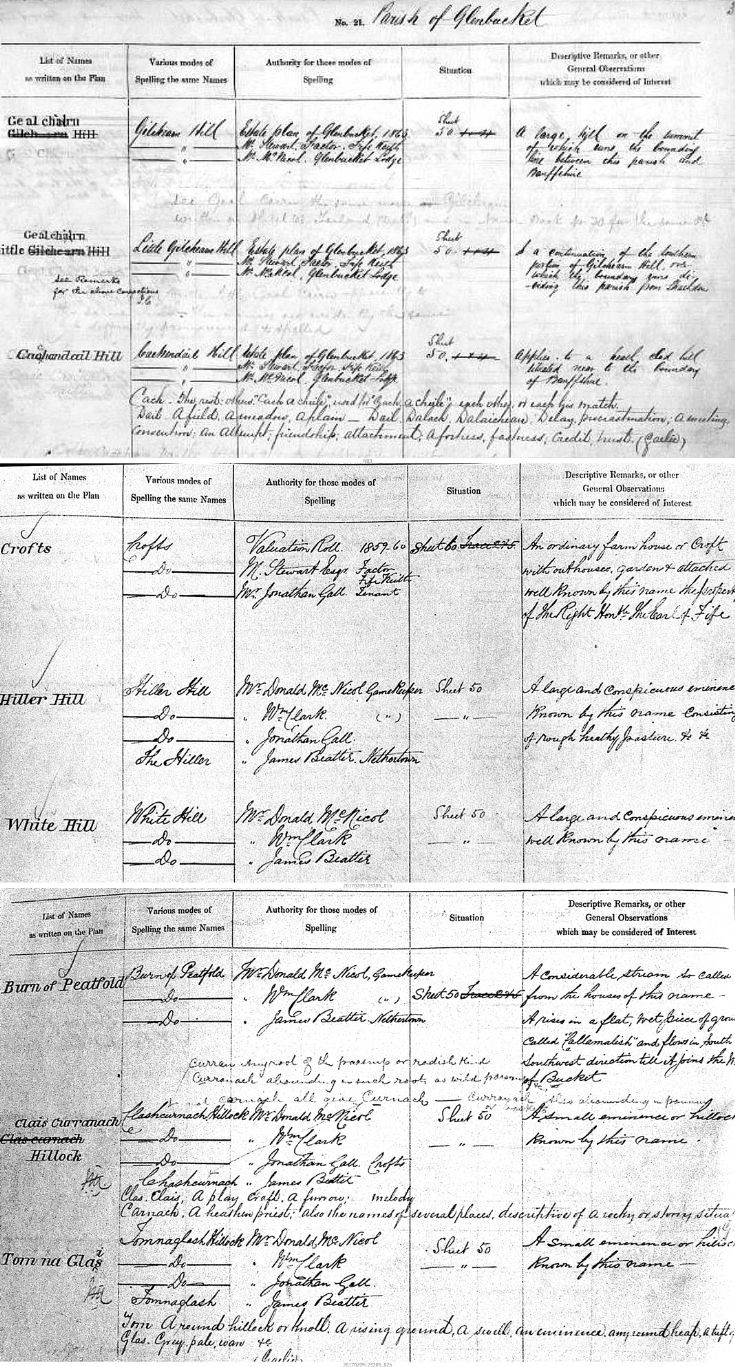 No. 21. Parish of Glenbucket
List of Names as written on the Plan
Various modes of Spelling the same Names
Authority for those modes of Spelling
Situation
Descriptive Remarks, or other General Observations which may be considered of Interest
Gealcharn
Gilchearn Hill
Gilchearn Hill
Estate plan of Glenbucket, 1863
Mr. Stewart, Factor, Fife Keith
Mr. McNicol, Glenbucket Lodge
Sheet
50
A large hill on the summit
of which runs the boundary
line between this parish and
Banffshire
Gealcharn
Little Gilchearn Hill
See Remarks
for the above corrections
Little Gilchearn Hill
Estate plan of Glenbucket, 1863
Mr. Stewart, Factor, Fife Keith
Mr. McNicol, Glenbucket Lodge
Sheet
50
Is a continuation of the southern
portion of Gilchearn Hill, over
which the boundary runs di-
-viding this parish from
Cachandail Hill
Cuckendail Hill
Estate plan of Glenbucket, 1863
Mr. Stewart, Factor, Fife Keith
Mr. McNicol, Glenbucket Lodge
Sheet
50
Applies to a heath clad hill
situated near to the boundary
of Banffshire.
Cach. The rest: others "Cach a cheile", used to "Gach a cheile", each other, or each his match.
Dail. A field, a meadow, a plain — Dail, Dalach, Dalaichean. Delay, procrastination; a meeting,
Convention; an Attempt; friendship; attachment; a fortress, fastness; Credit, trust. (Gaelic)
List of Names as written on the Plan
Various modes of Spelling the same Names
Authority for those modes of Spelling
Situation
Descriptive Remarks, or other General Observations which may be considered of Interest
Crofts
Crofts
Do
Do
Valuation Roll 1859-60
M. Stewart Esqr Factor Fife Keith
Mr Jonathan Gall Tenant
Sheet 60 Trace 2 & 5
An ordinary farm house or Croft
with outhouses, garden & attached
well known by this name the property
of The Right Honble The Earl of Fife
Hiller Hill
Hiller Hill
Do
Do
The Hiller
Mr Donald Mc Nicol Gamekeeper
" Wm Clark (")
" Jonathan Gall
" James Beatter Nethertown
Sheet 50
"
A large and conspicuous eminence
known by this name Consisting
of rough heathy pasture &c &c
White Hill
White Hill
Do
Do
Mr Donald McNicol
" Wm Clark
" James Beatter
Sheet 50
"
A large and conspicuous eminen
well known by this name
List of Names as written on the Plan
Various modes of Spelling the same Names
Authority for those modes of Spelling
Situation
Descriptive Remarks, or other General Observations which may be considered of Interest
Burn of Peatfold
Burn of Peatfold
Do
Do
Mr Donald Mc Nicol, Gamekeeper
" Wm Clark (")
" James Beatter Nethertown
Sheet 50
A considerable stream so called
from the houses of this name —
It rises in a flat, wet, piece of grou
called "Callamalish" and flows in South
Southwest direction till it joins the W
of Bucket
Curran Any root of the parsnip or radish kind
Curranach abounding in such roots as wild parsnip
Clais Curranach
Clas carnach
Hillock
Clashcurnach Hillock
Do
Do
Chashcurnach
Mr Donald McNicol
" Wm Clark
" Jonathan Gall Crofts
" James Beatter
Sheet 50
"
A small eminence or hillock
known by this name.
Clas. Clais, A play, Craft, A furrow; melody
Carnach, A heathen priest; also the names of several places, descriptive of a rocky or stony situa
Tom na Glas
Tomnaglash Hillock
Do
Do
Tomnaglash
Mr Donald Mc Nicol
" Wm Clark
" Jonathan Gall
" James Beatter
Sheet 50
"
A small eminence or hilloc
known by this name —
Tom A round hillock or knoll, a rising ground, a swell, an eminence, any round heap, a tuft
Glas. Grey, pale, wan &c
(Gaelic)